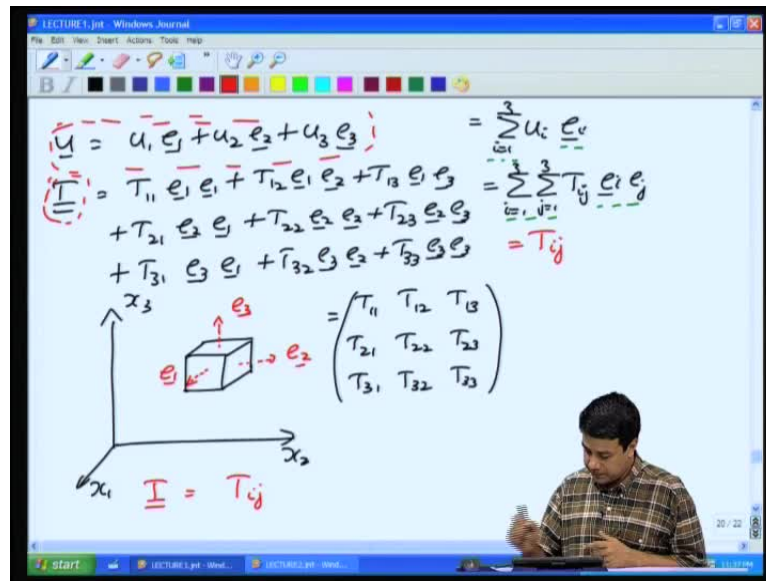 LECTURE1.jnt - Windows Journal
File Edit View Insert Actions Tools Help
B I
u = u₁ e₁ + u₂ e₂ + u₃ e₃ = ∑_{i=1}^{3} uᵢ eᵢ
T = T₁₁ e₁ e₁ + T₁₂ e₁ e₂ + T₁₃ e₁ e₃ = ∑_{i=1}^{3} ∑_{j=1}^{3} Tᵢⱼ eᵢ eⱼ
+ T₂₁ e₂ e₁ + T₂₂ e₂ e₂ + T₂₃ e₂ e₃ = Tᵢⱼ
+ T₃₁ e₃ e₁ + T₃₂ e₃ e₂ + T₃₃ e₃ e₃
x₃
e₃
e₂
e₁
x₂
x₁
= ( T₁₁ T₁₂ T₁₃
T₂₁ T₂₂ T₂₃
T₃₁ T₃₂ T₃₃ )
I = Tᵢⱼ
20 / 22
start LECTURE1.jnt - Wind... LECTURE2.jnt - Wind... 11:37 PM